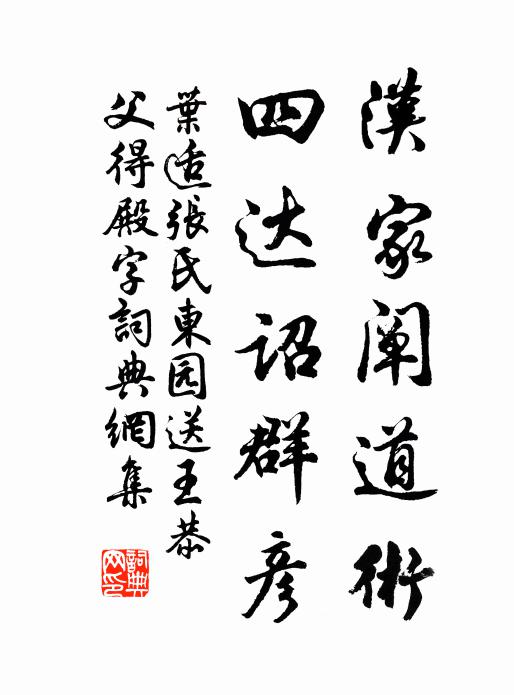 漢家阐道術
四达詔群彦
葉适張氏東园送王恭
父得殿字詞典網集
詞典网印